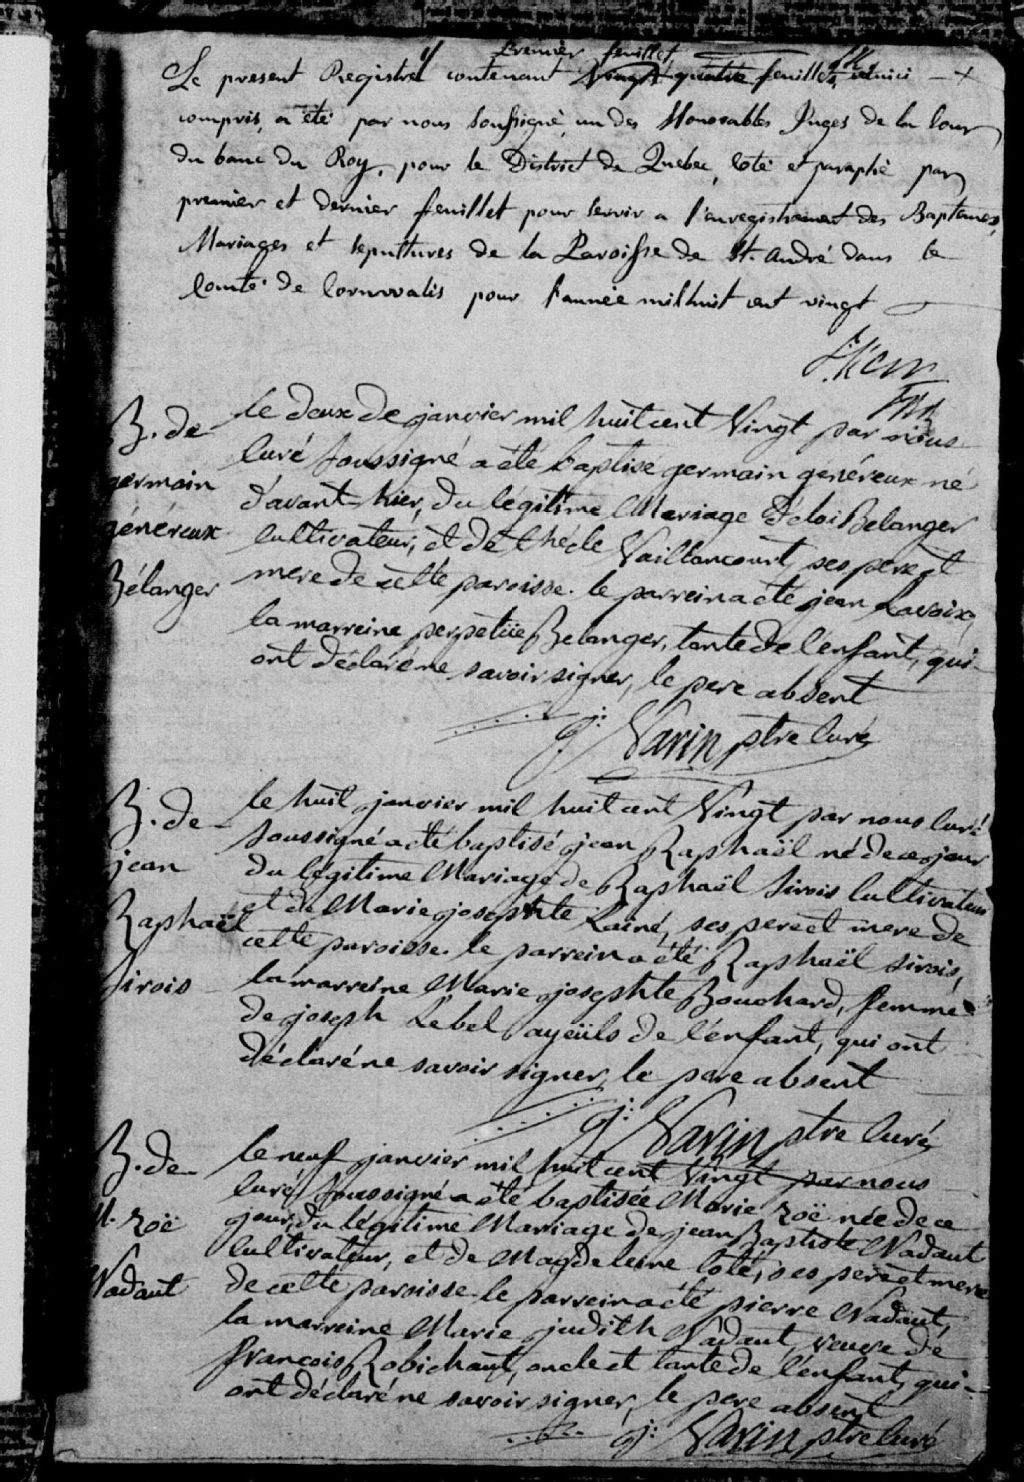 Premier feuillet
Le present Registre contenant vingt quatre feuillets celuici
compris, a été par nous soussigné, un des Honorables Juges de la Cour
du banc du Roy, pour le District de Quebec, coté et paraphé par
premier et dernier feuillet pour servir a l'enregistrement des Baptemes,
Mariages et sepultures de la Paroisse de St. André dans le
Comté de Cornwalis pour l'année mil huit cent vingt
B. de
germain
généreux
Bélanger
le deux de janvier mil huit cent Vingt par nous
Curé soussigné a été baptisé germain genéreux né
d'avant-hier, du légitime Mariage d'éloi Belanger
Cultivateur, et de théCle Vaillancourt, ses pere et
mere de cette paroisse. le parrein a été jean Lavoix,
la marreine perpetüe Belanger, tante de l'enfant, qui
ont déclaré ne savoir signer, le pere absent
j: Varin ptre Curé
B. de
jean
Raphaël
Sirois
le huit janvier mil huit cent Vingt par nous Curé
soussigné a été baptisé jean Raphaël né de ce jour
du légitime Mariage de Raphaël Sirois Cultivateur
et de Marie josephte Lainé, ses pere et mere de
cette paroisse. le parrein a été Raphaël sirois,
la marreine Marie josephte Bouchard, femme
de joseph Lebel ayeüls de l'enfant, qui ont
déclaré ne savoir signer, le pere absent
j: Varin ptre Curé
B. de
M. zoë
Nadaut
le neuf janvier mil huit cent Vingt par nous
Curé soussigné a été baptisée Marie zoë née de ce
jour, du légitime Mariage de jean Baptiste Nadaut
Cultivateur, et de Magdeleine Coté, ses pere et mere
de cette paroisse. le parrein a été pierre Nadaut,
la marreine Marie judith Nadaut, veuve de
francois Robichaut, oncle et tante de l'enfant, qui
ont déclaré ne savoir signer, le pere absent
j: Varin ptre Curé